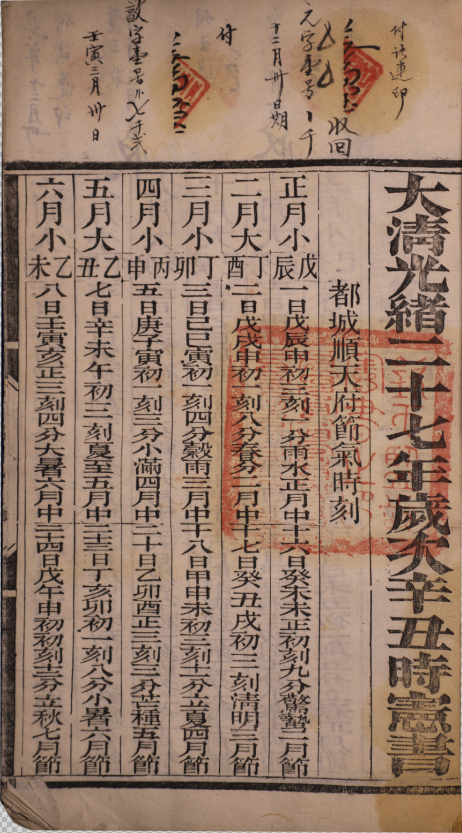 付訖連印
收回
元字壹号
十二月卅日期
付
壹号
壬寅三月卅日
大清光緒二十七年歲次辛丑時憲書
都城順天府節氣時刻
正月小 戊辰 一日戊辰申初三刻一分雨水正月中十六日癸未未正初刻九分驚蟄二月節
二月大 丁酉 二日戊戌申初一刻八分春分二月中十七日癸丑戌初三刻清明三月節
三月小 丁卯 三日己巳寅初一刻四分穀雨三月中十八日甲申未初三刻分立夏四月節
四月小 丙申 五日庚子寅初一刻三分小滿四月中二十日乙卯酉正三刻三分芒種五月節
五月大 乙丑 七日辛未午初三刻夏至五月中二十三日丁亥卯初一刻八分小暑六月節
六月小 乙未 八日壬寅亥正三刻四分大暑六月中二十四日戊午申初初刻分立秋七月節